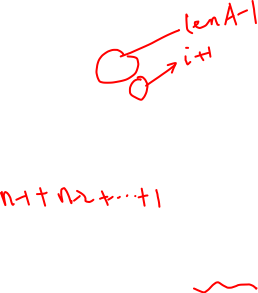 lenA-1
i+1
n-1+n-2+...+1